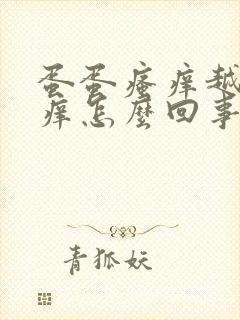 蛋蛋瘙痒越
痒怎麼回事
青狐妖